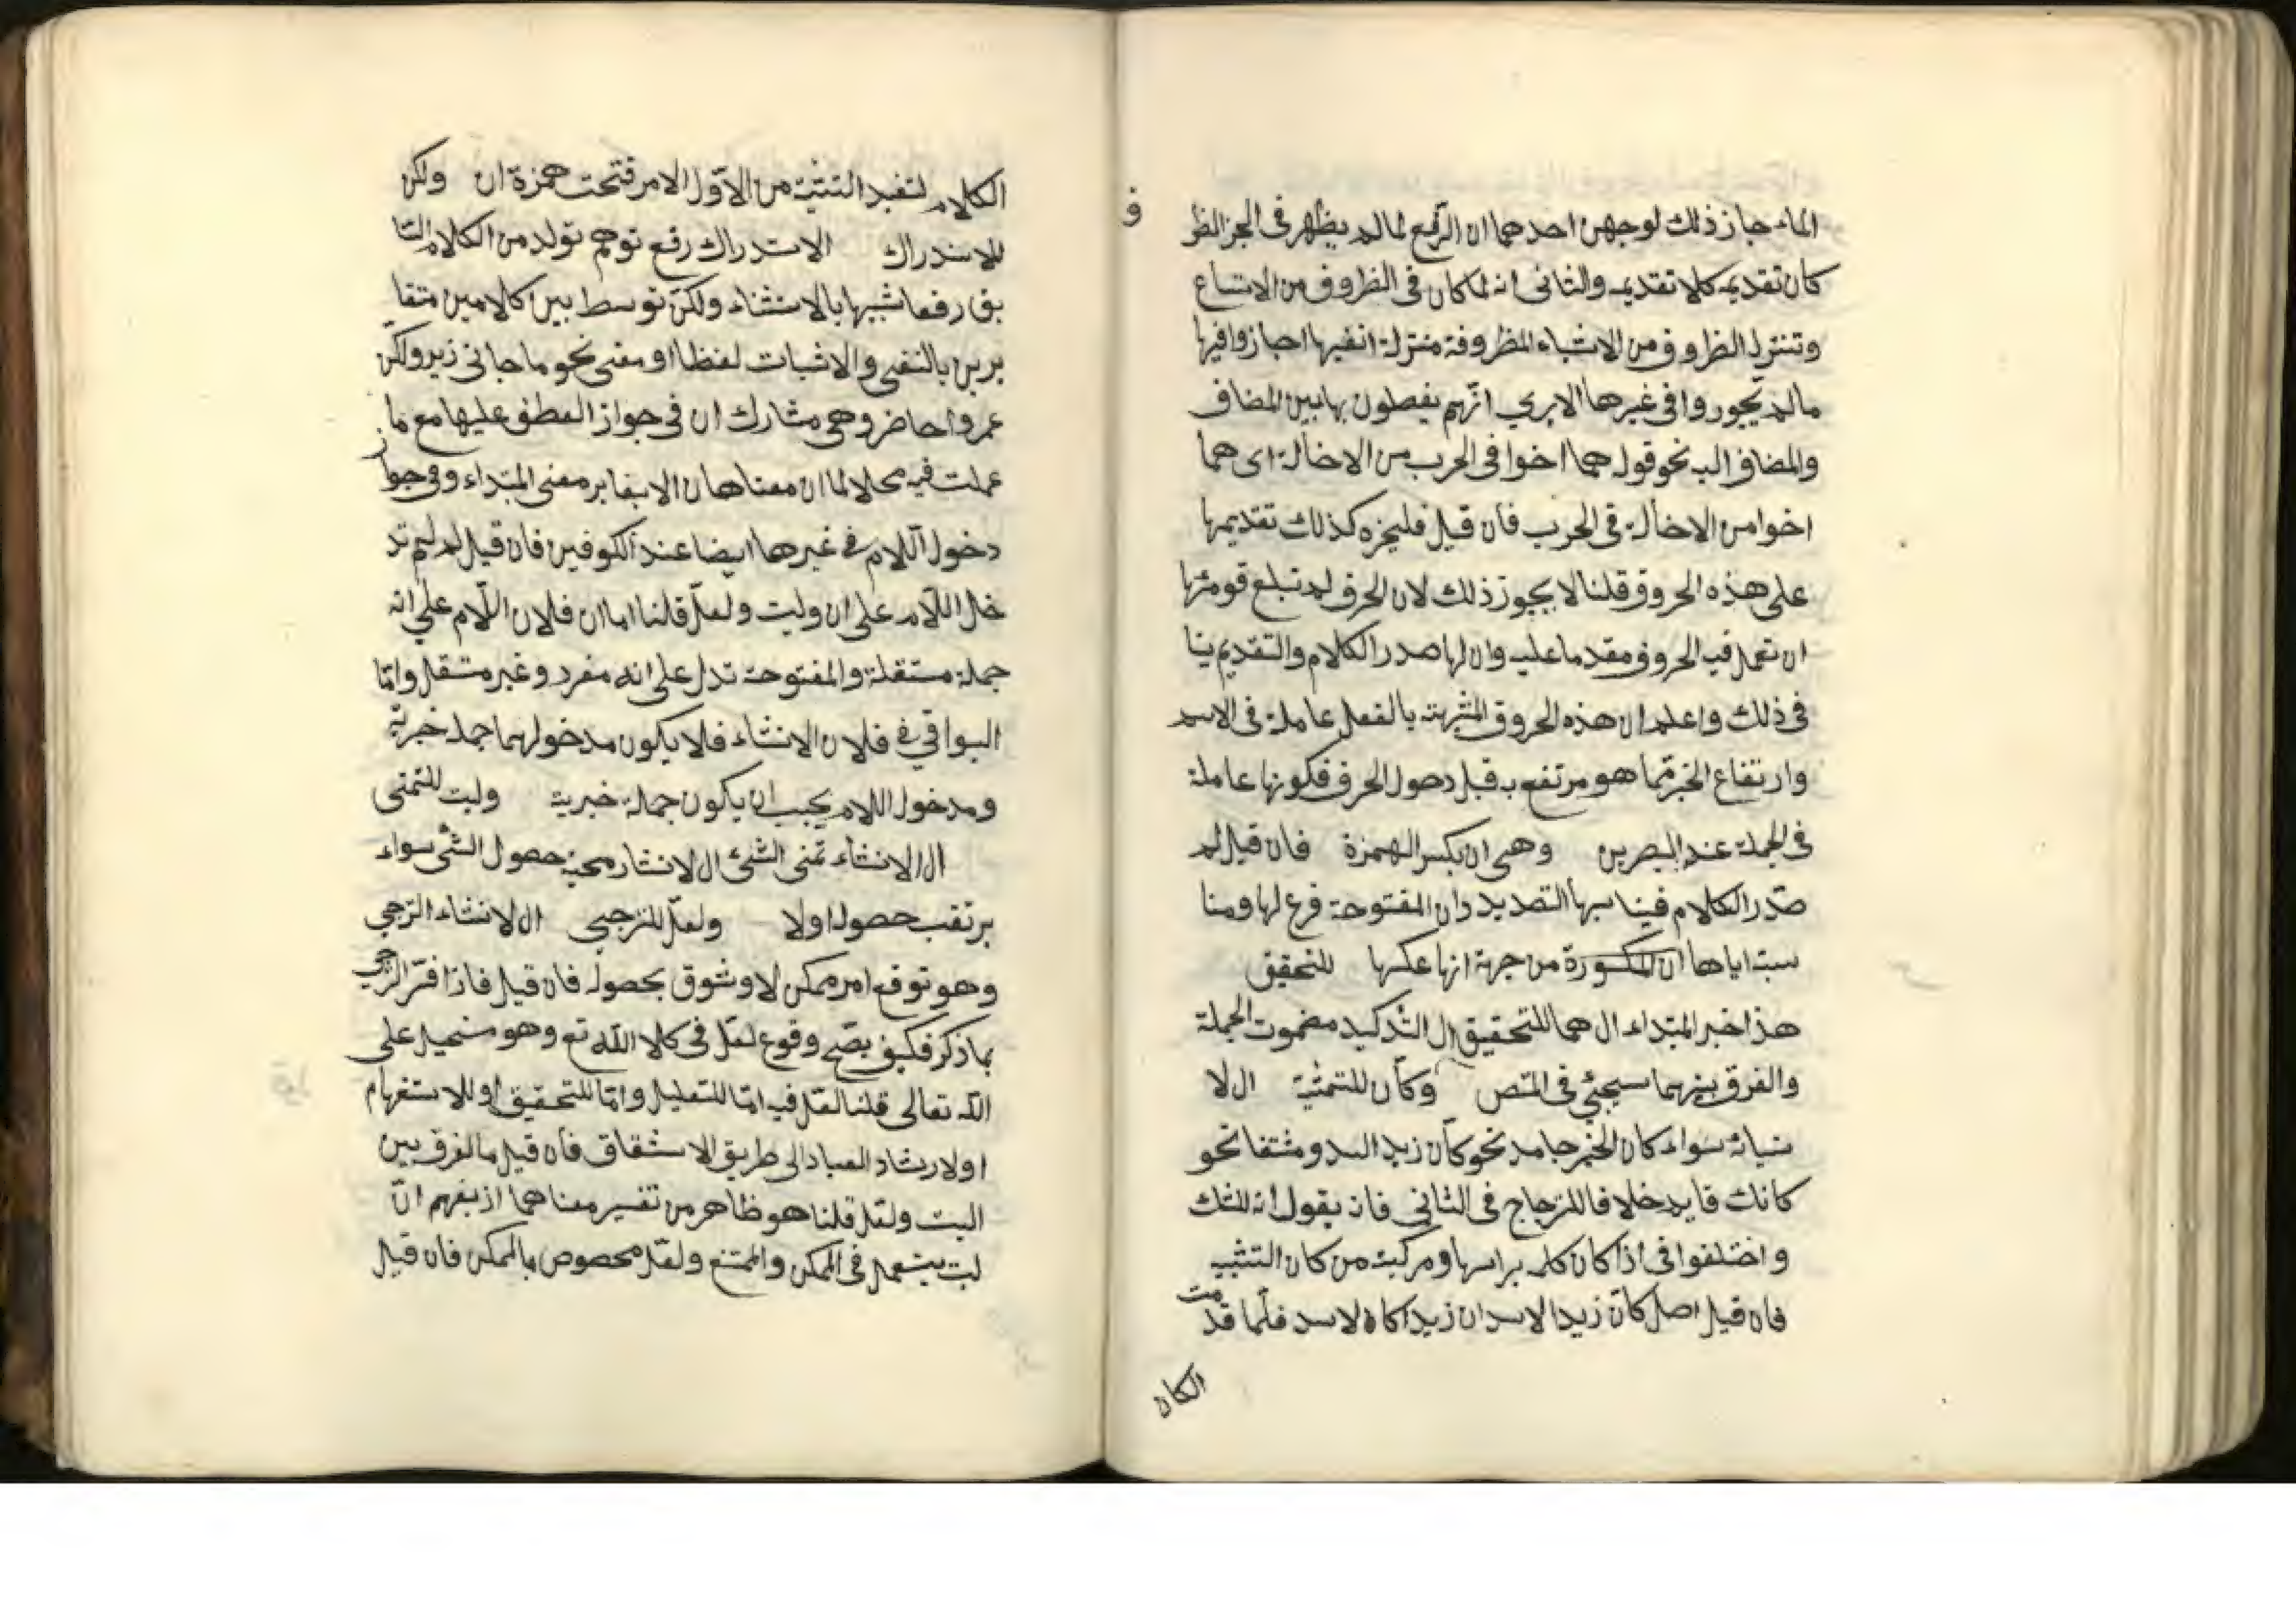 الماء جاز ذلك لوجهين احدهما ان الرفع لما لم يظهر في الجر الظر
ف
كان تقديمه كلا تقديمه والثاني انه لما كان في الظروف من الاتساع
وتنزل الظروف من الاشياء المظروفة منزلة انفسها اجازوا فيها
ما لم يجوزوا في غيرها الا يرى انهم يفصلون بها بين المضاف
والمضاف اليه نحو قوله هما اخوا في الحرب من الاخاله اى هما
اخوا من الاخاله في الحرب فان قيل فليجزه كذلك تقديمها
على هذه الحروف قلنا لا يجوز ذلك لان الحرف لم تبلغ قومتها
ان تعمل فيه الحروف مقدما عليه وان لها صدر الكلام والتقديم ينا
في ذلك واعلم ان هذه الحروف المشبهة بالفعل عاملة في الاسم
وارتفاع الخبر مما هو مرتفع به قبل دحول الحرف فكونها عاملة
في الجملة عند البصرين وهى ان بكسر الهمزة فان قيل لم
صدر الكلام فيناسبها التصدير وان المفتوحة فرع لها ومنا
سبة اياها ان المكسورة من جهة انها عكسها للتحقيق
هذا خبر المبتداء ال هما للتحقيق ال التدكيد مضموت الجملة
والفرق بينهما سيجئ في المتص وكأن للتمثية ال لا
نسبائه سواء كان الخبر جامد نحو كأن زيد السد ومشتفا نحو
كانك قايد خلافا للزجاج في الثاني فانه يقول انه للشك
واختلفوا في اذا كان كلمه براسها ومركبة من كان التشبيه
فان قيل اصل كأن زيدا الاسد ان زيدا كاه لاسد فلما قدمت
الكاه
الكلام لتفيد التشية من الاول الامر فتحت همزة ان ولكن
للاستدراك الاستدراك رفع توهم تولد من الكلام السا
بق رفعا شبيها بالاستثناء ولكن توسط بين كلامين متغا
يرين بالنفى والاثبات لفظا او معنى نحو ما جانى زيد ولكن
عمروا حاضر وهى مشارك ان في جواز العطف عليها مع ما
عملت فيه محلا لما ان معناها ان الابغاير معنى المبتداء وفي جواز
دخول اللام في غيرها ايضا عند الكوفين فان قيل لم لم تد
خل اللام على ان وليت ولعل قلنا اما ان فلان اللام على انه
جملة مستقلة والمفتوحة تدل على انه مفرد وغير مستقل واما
البواقي في فلان الانشاء فلا يكون مدخولهما جملة خبرية
ومدخول اللام يجب ان يكون جملة خبرية وليت للتمنى
ال الانشاء تمنى الشئ ال الانشار محبة حصول الشئ سواء
يرتقب حصوله اولا ولعل للترجى ال لانشاء الترجي
وهو توقع امر ممكن لا وشوق بحصوله فان قيل فاذا فسر الترجي
بما ذكر فكيف يصح وقوع لعل في كلا الله تع وهو مستحيل على
الله تعالى قلنا لعل فيه اما للتعليل واما للتحقيق او للاستفهام
اولارشاد العباد الى طريق الاشقاق فان قيل ما الفرق بين
اليت ولعل قلنا هو ظاهر من تفسير معناهما اذ يفهم ان
ليت يستعمل في الممكن والممتنع ولعل محصوص بالممكن فان قيل